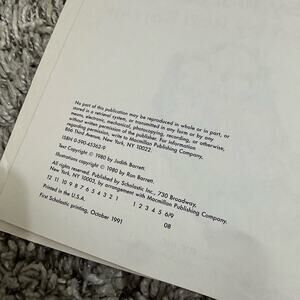 No part of this publication may be reproduced in whole or in part, or
stored in a retrieval system, or transmitted in any form or by any
means, electronic, mechanical, photocopying, recording, or otherwise,
without written permission of the publisher. For information
regarding permission, write to Macmillan Publishing Company,
866 Third Avenue, New York, NY 10022.
ISBN 0-590-45362-9
Text Copyright © 1980 by Judith Barrett.
Illustrations copyright © 1980 by Ron Barrett.
All rights reserved. Published by Scholastic Inc., 730 Broadway,
New York, NY 10003, by arrangement with Macmillan Publishing Company.
12 11 10 9 8 7 6 5 4 3 2 1 1 2 3 4 5 6/9
Printed in the U.S.A. 08
First Scholastic printing, October 1991